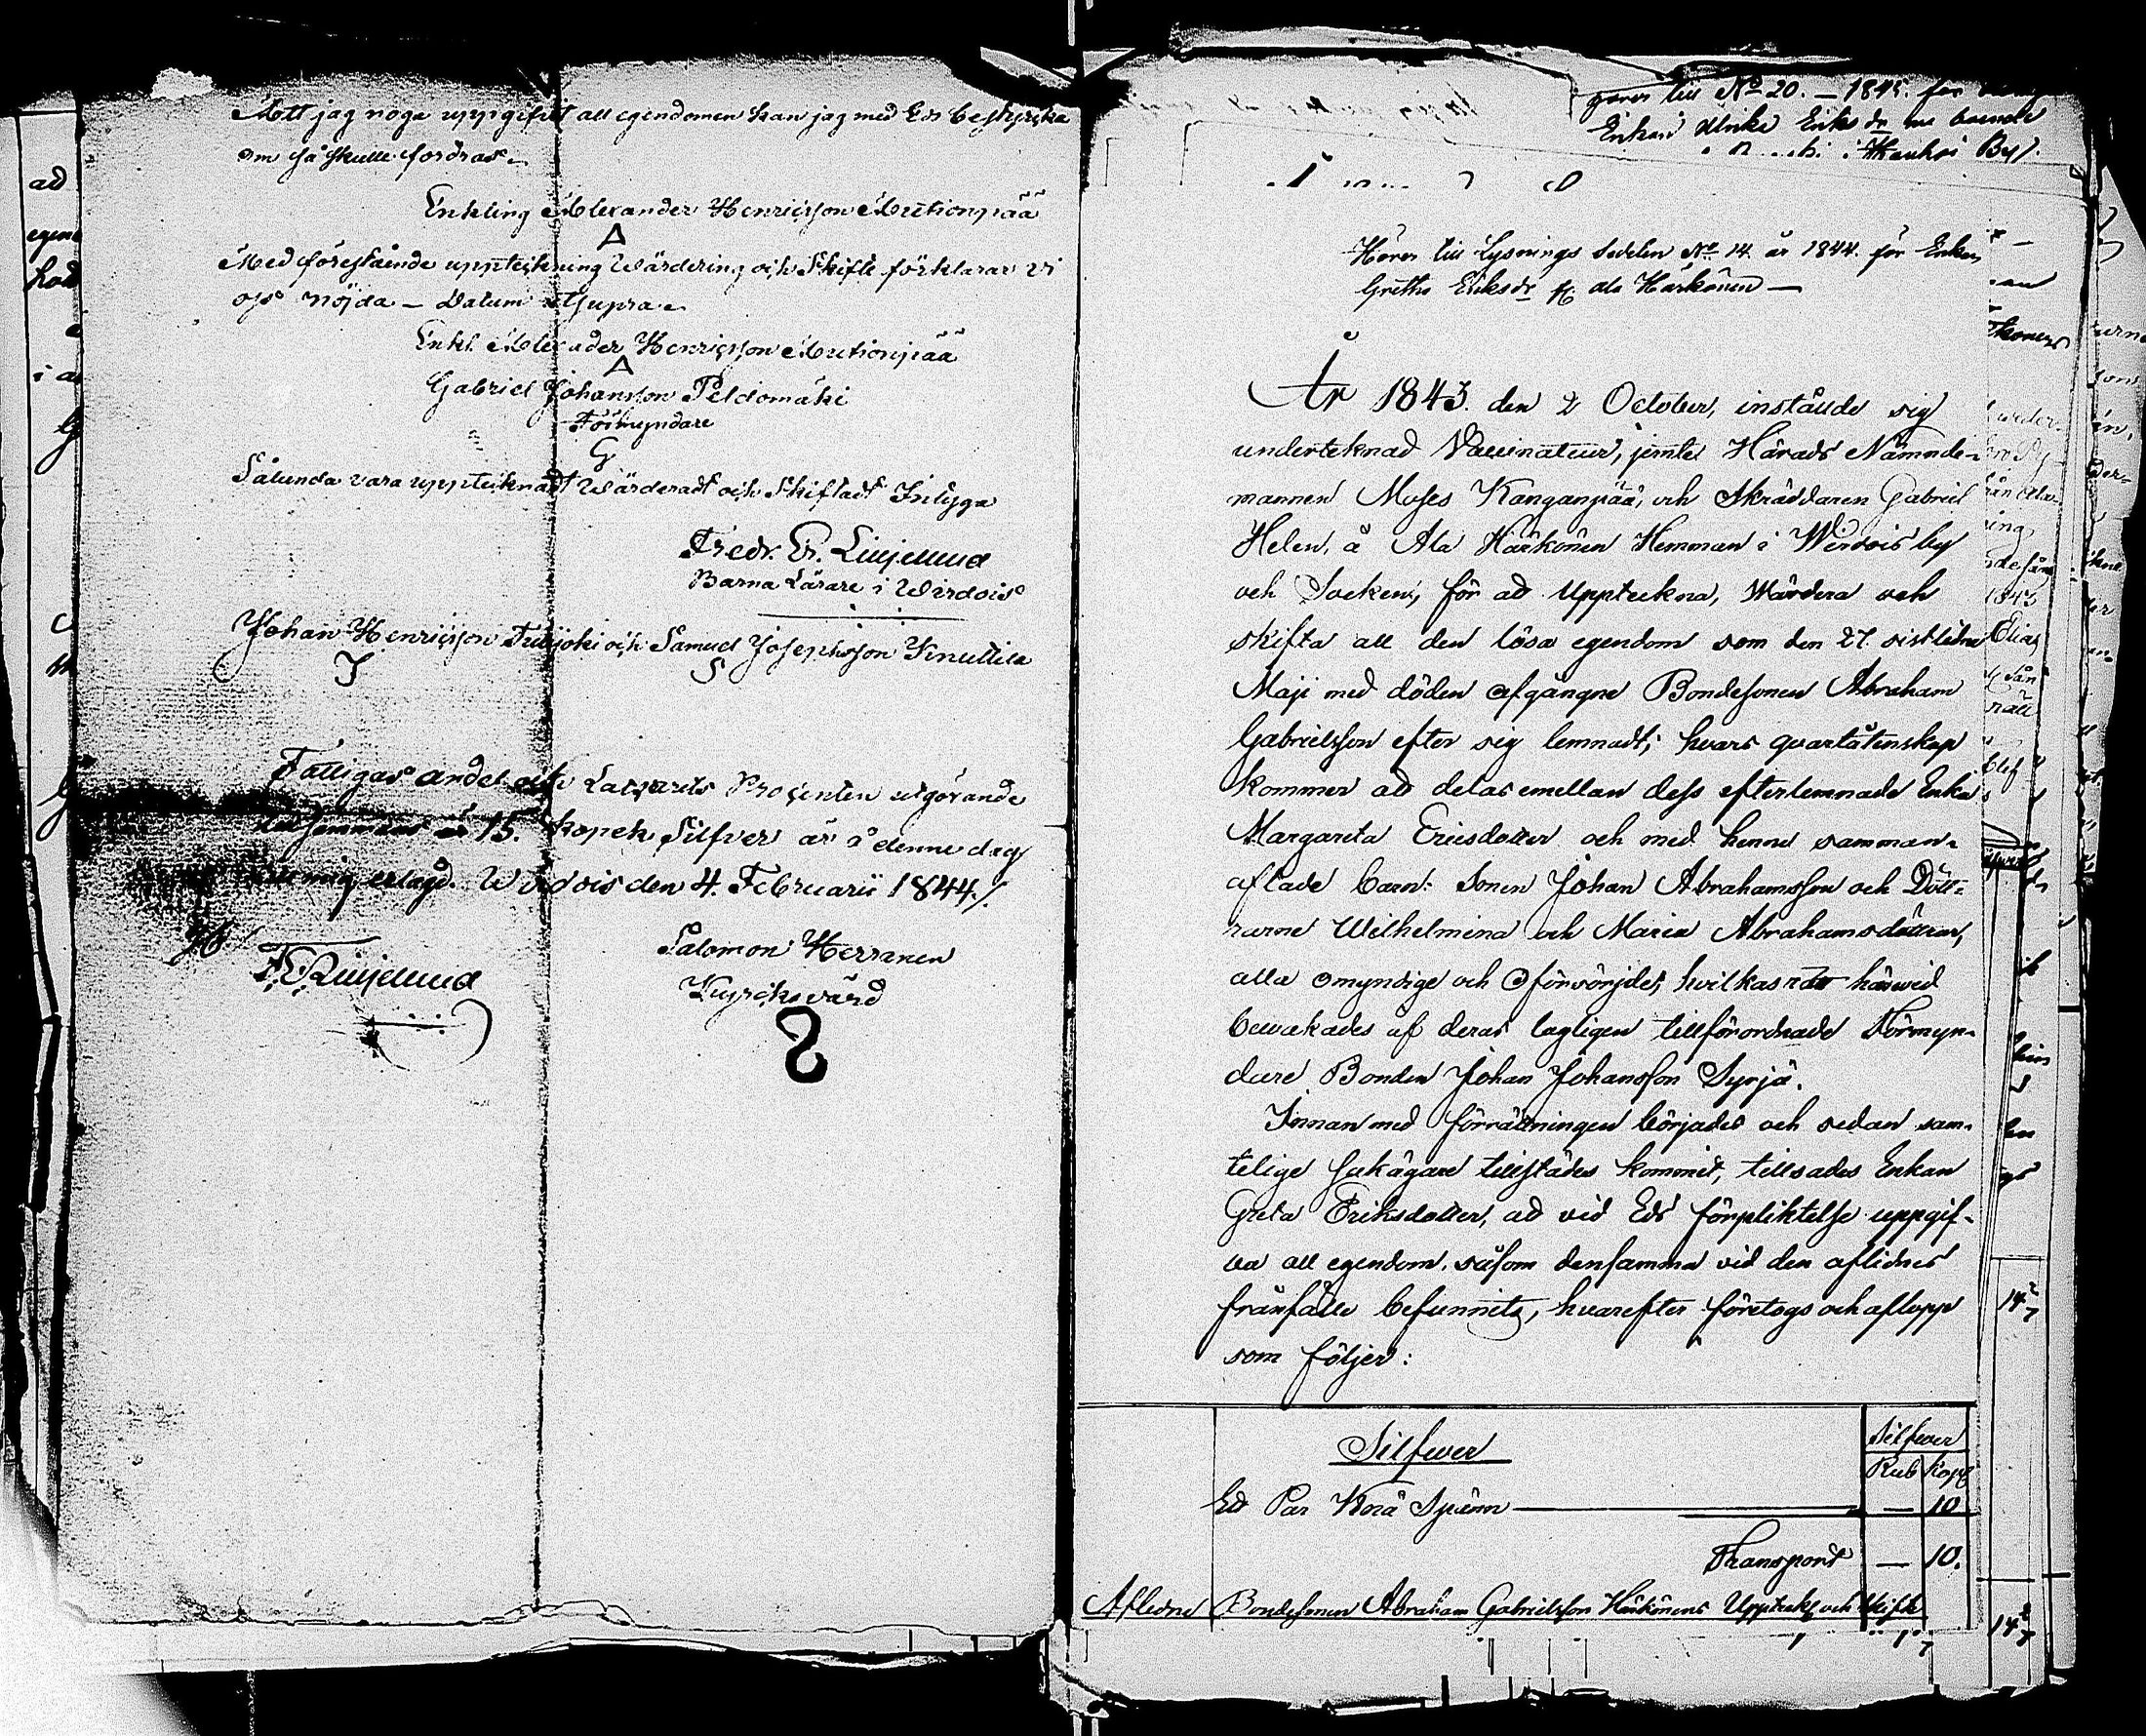 Att jag noga uppgifvit all egendomen kan jag med Ed bestyrcka
om så skulle fordras.
Enkling Alexander Henricsson
A
Med förestående uppteckning Wärdering och Skifte förklarar vi
oss nöjda – Datum utsupra.
Enkl. Alexander Henricsson
A
Gabriel Johansson Peldomäki
Förmyndare
G
Sålunda vara upptecknadt Wärderadt och Skiftadt Intyga
Fredr. Er. Liljelund
Barna Lärare i Wirdois
Johan Henricsson och Samuel Josephsson Knuttila
J S
Fattigas andel och Lazarets Procenten utgörande
15. kopek Silfver är å denne dag
till mig erlagd. Wirdois den 4. Februarii 1844./.
Salomon Herranen
Kyrckovärd
F. E. Liljelund
hörer till No 20. – 1845. för
Enkan Ulrika Eriks dr
By/.
Hörer till Lysnings Sedelen No 14 år 1844. för Enkan
Gretha Eriksdr Ala Härkönen –
År 1843. den 2 October, instälde sig
underteknad Vaccinateur, jemte Härads Nämnde-
mannen Moses Kanganpää, och Skräddaren Gabriel
Helen, å Ala Härkönen Hemman i Wirdois by
och Socken, för ad Uppteckna, Wärdera och
skifta all den lösa egendom som den 27. sistledne
Maji med döden afgångne Bondesonen Abraham
Gabrielsson efter sig lemnadt; hvars qvarlåtenskap
kommer ad delas emellan dess efterlemnade Enka
Margareta Ericsdotter och med henne samman-
aflade barn: Sonen Johan Abrahamsson och Dött-
rarne Wilhelmina och Maria Abrahamsdöttrar,
alla omyndige och oförsörjde, hvilkas rätt härvid
bevakades af deras lagligen tillförordnade Förmyn-
dare Bonden Johan Johansson Syrjä.
Innan med förrättningen börjades och sedan sam-
telige Sakägare tillstädes kommit, tillsades Enkan
Greta Eriksdotter, ad vid Eds förpliktelse uppgif-
va all egendom, såsom densamma vid den aflidnes
frånfälle befunnits, hvarefter företogs och aflopp
som följer:
Silfwer
Silfwer
Rub Kop
Ett Par Knä Spänn — 10
Transport — 10.
Aflidne Bondesonen Abraham Gabrielsson Härkönens Uppteckn och Skifte